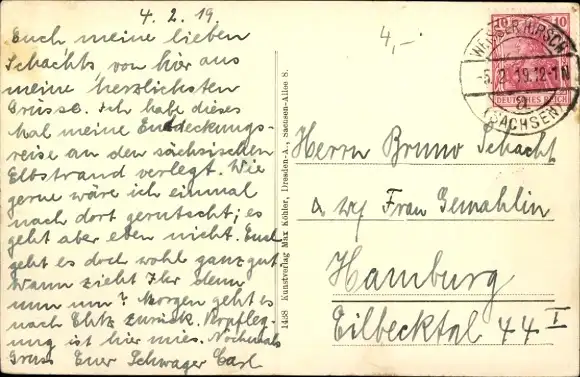 4. 2. 19.
Euch meine lieben
Schachts von hier aus
meine herzlichsten
Grüsse. Ich habe dieses
Mal meine Entdeckungs-
reise an den sächsischen
Elbstrand verlegt. Wie
gerne wäre ich einmal
nach dort gerutscht; es
geht aber eben nicht. Euch
geht es doch wohl ganz gut
Wann zieht Ihr denn
nun um? Morgen geht es
nach zurück. Verpfleg-
ung ist hier mies. Nochmals
Gruss Euer Schwager Carl
1438 Kunstverlag Max Köhler, Dresden-A., Sachsen-Allee 8.
4,-
10 10
DEUTSCHES REICH
WEISSER HIRSCH
-5.2.19.12-1N
a
(SACHSEN)
Herrn Bruno Schacht
Frau Gemahlin
Hamburg
Eilbecktal 44 I